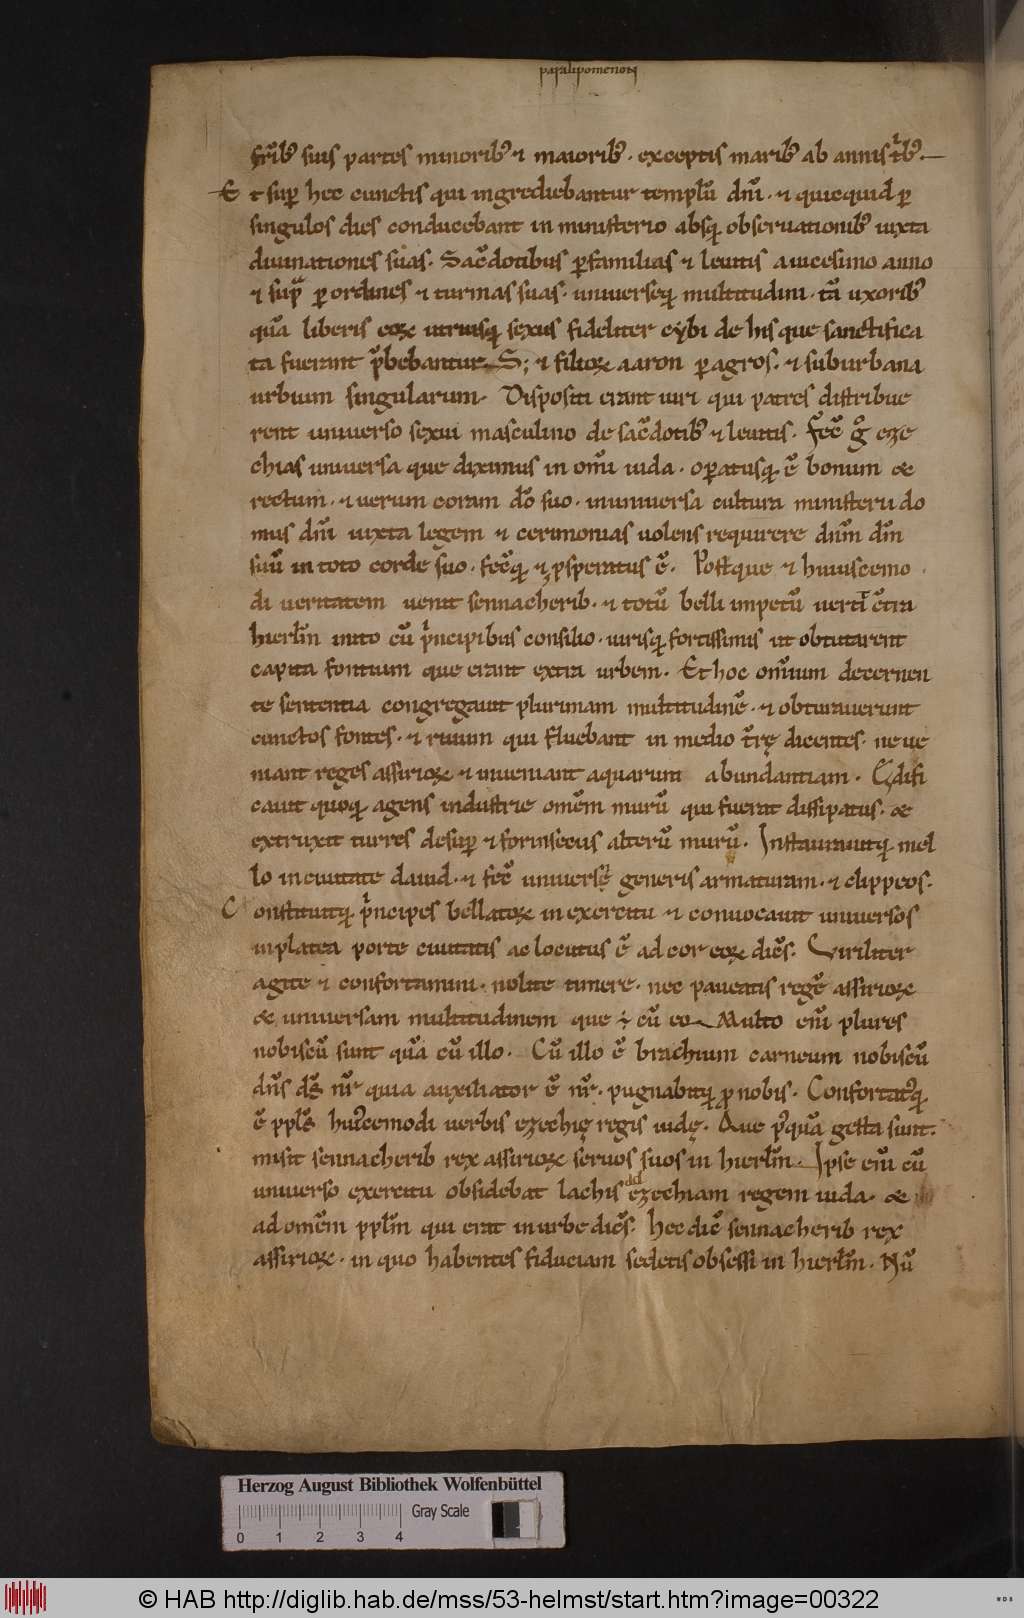 paralipomenon
fr̄ib; suis partes minorib; ⁊ maiorib; . exceptis marib; ab annis trib; .
Et sup̱ hec cunctis qui ingrediebantur templū dn̄i . ⁊ quicquid p̱
singulos dies conducebant in ministerio absq; obseruationib; iuxta
diuinationes suas . Sac̄dotibus p̱ familias ⁊ leuitis a uicesimo anno
⁊ supᵃ p̱ ordines ⁊ turmas suas . universeq; multitudini . tā uxorib;
quā liberis eoꝝ utriusq; sexus fideliter cybi de his que sanctifica
ta fuerant p̄bebantur . S; ⁊ filioꝝ aaron p̱ agros . ⁊ suburbana
urbium singularum . Dispositi erant uiri qui patres distribue
rent uniuerso sexui masculino de sac̄dotib; ⁊ leuitis . Fec̄ gͦ eze
chias uniuersa que diximus in om̄i iuda . op̱atusq; ē bonum &
rectum . ⁊ uerum coram dō suo . in uniuersa cultura ministerii do
mus dn̄i iuxta legem ⁊ cerimonias uolens requirere dn̄m dm̄
suū in toto corde suo . fec̄q; ⁊ ꝓsperatus ē . Postque ⁊ huiuscemo
di ueritatem uenit sennacherib . ⁊ totū belli impetū uerti c̄tra
hierl̄m inito cū pⁱncipibus consilio . uirisq; fortissimis ut obturarent
capita fontium que erant extra urbem . Et hoc om̄ium decernen
te sententia congregauit plurimam multitudinē . ⁊ obturauerunt
cunctos fontes . ⁊ riuum qui fluebant in medio t̄rę dicentes . ne ue
niant reges assirioꝝ ⁊ inueniant aquarum abundantiam . Edifi
cauit quoq; agens industrie omēm murū qui fuerat dissipatus . &
extruxit turres desup̱ ⁊ forinsecus alterū murū . Instaurauitq; mel
lo in ciuitate dauid . ⁊ fec̄ uniuersi generis armaturam . ⁊ clippeos .
Constituitq; pⁱncipes bellatoꝝ in exercitu ⁊ conuocauit uniuersos
in platea porte ciuitatis ac locutus ē ad cor eoꝝ dic̄s . Viriliter
agite ⁊ confortamini . nolite timere . nec paueatis regē assirioꝝ
& uniuersam multitudinem que ÷ cū eo . Multo eni᷒ plures
nobiscū sunt quā cū illo . Cū illo ē brachium carneum nobiscū
dn̄s ds̄ nr̄ quia auxiliator ē nr̄ . pugnabitq; ꝓ nobis . Confortatꝰq;
ē ppl̄s huiꝰcemodi uerbis ezechię regis iudę . Que pꝰquā gesta sunt .
misit sennacherib rex assirioꝝ seruos suos in hierl̄m . Ipse eni᷒ cū
uniuerso exercitu obsidebat lachis ad ezechiam regem iuda . &
ad omēm ppl̄m qui erat in urbe dic̄s . Hec dic̄ sennacherib rex
assirioꝝ . in quo habentes fiduciam sedetis obsessi in hierl̄m . Nū
Herzog August Bibliothek Wolfenbüttel
Gray Scale
0 1 2 3 4
© HAB http://diglib.hab.de/mss/53-helmst/start.htm?image=00322